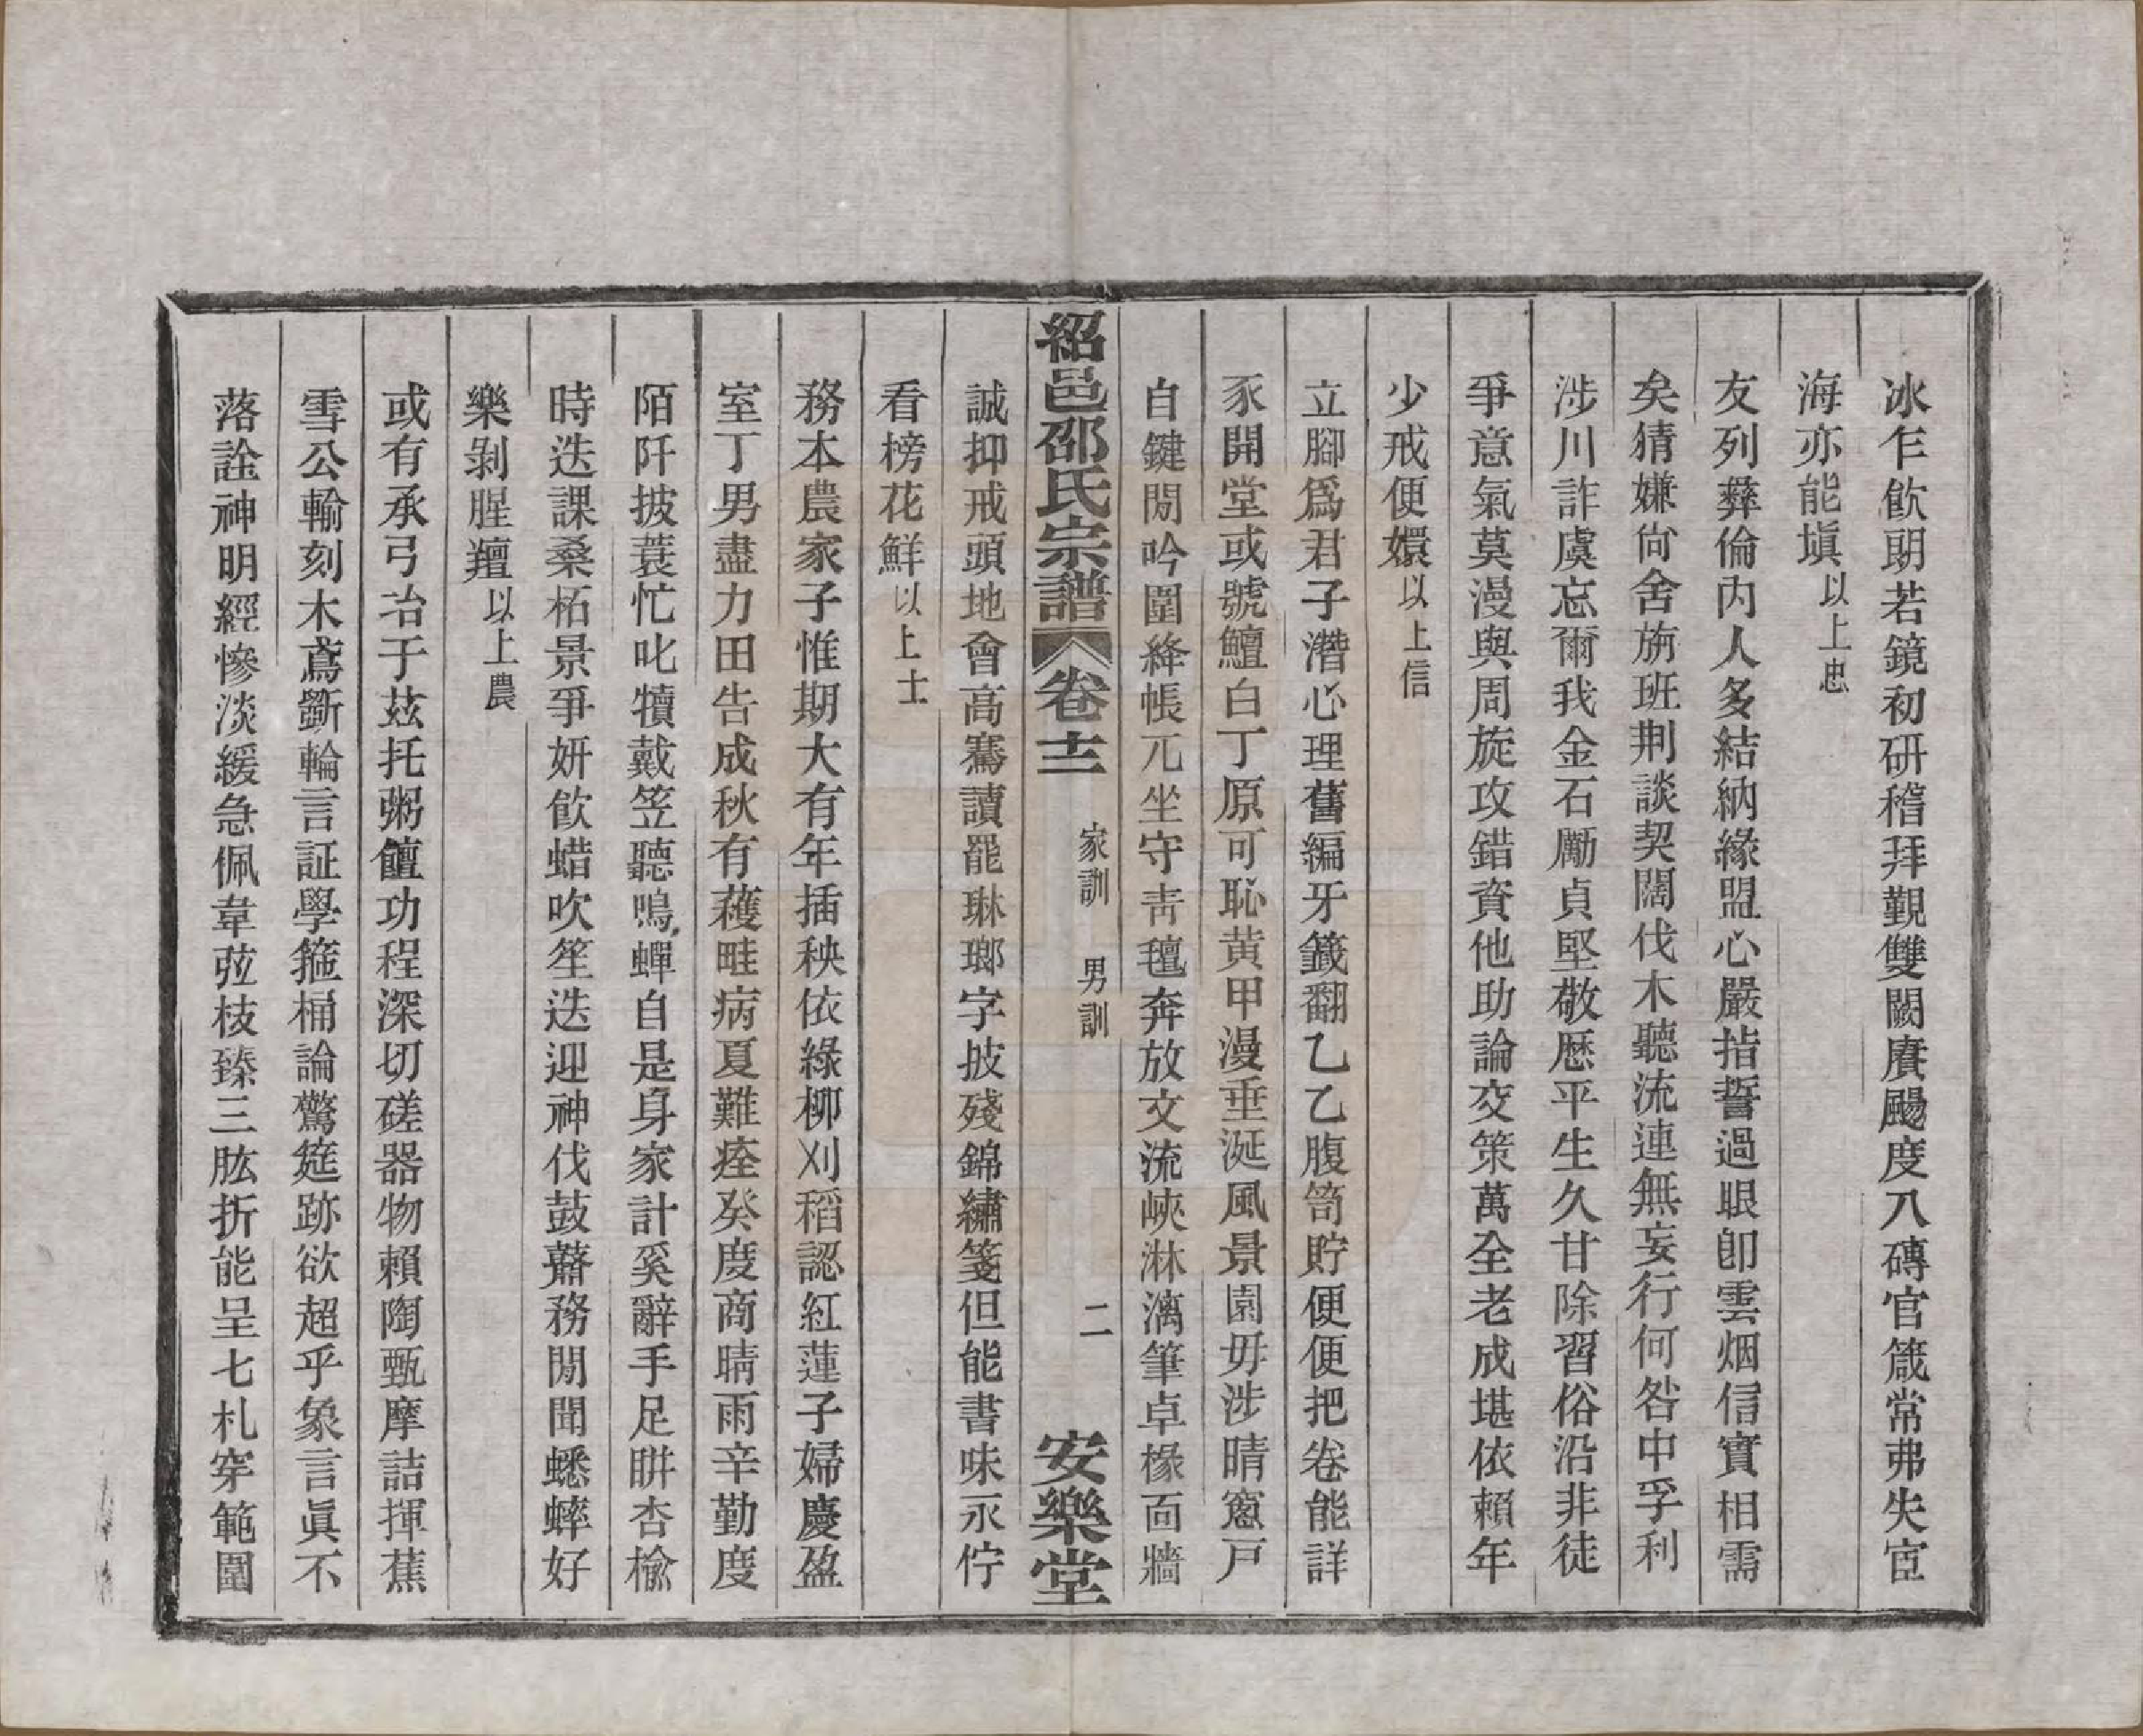 冰乍飲朗若鏡初研稽拜覲雙闕賡颺度八磚官箴常弗失宦
海亦能塡以上忠
友列彝倫內人多結納緣盟心嚴指誓過眼卽雲烟信實相需
矣猜嫌尙舍旃班荆談契闊伐木聽流連無妄行何咎中孚利
涉川詐虞忘爾我金石勵貞堅敬歷平生久甘除習俗沿非徒
爭意氣莫漫與周旋攻錯資他助論交策萬全老成堪依賴年
少戒便嬛以上信
立腳爲君子潛心理舊編牙籤翻乙乙腹笥貯便便把卷能詳
豕開堂或號鱣白丁原可恥黃甲漫垂涎風景園毋涉晴窻戶
自鍵閒吟圍絳帳兀坐守靑氊奔放文流峽淋漓筆卓椽面牆
紹邑邵氏宗譜 卷十二 家訓 男訓 二 安樂堂
誠抑戒頭地會高騫讀罷琳瑯字披殘錦繡箋但能書味永佇
看榜花鮮以上士
務本農家子惟期大有年插秧依綠柳刈稻認紅蓮子婦慶盈
室丁男盡力田告成秋有穫畦病夏難痊癸度商晴雨辛勤度
陌阡披蓑忙叱犢戴笠聽鳴蟬自是身家計奚辭手足胼杏楡
時迭課桑柘景爭妍飮蜡吹笙迭迎神伐鼓鼛務閒聞蟋蟀好
樂剝腥羶以上農
或有承弓冶于茲托粥饘功程深切磋器物賴陶甄摩詰揮蕉
雪公輸刻木鳶斲輪言証學箍桶論驚筵跡欲超乎象言眞不
落詮神明經慘淡緩急佩韋弦枝臻三肱折能呈七札穿範圍